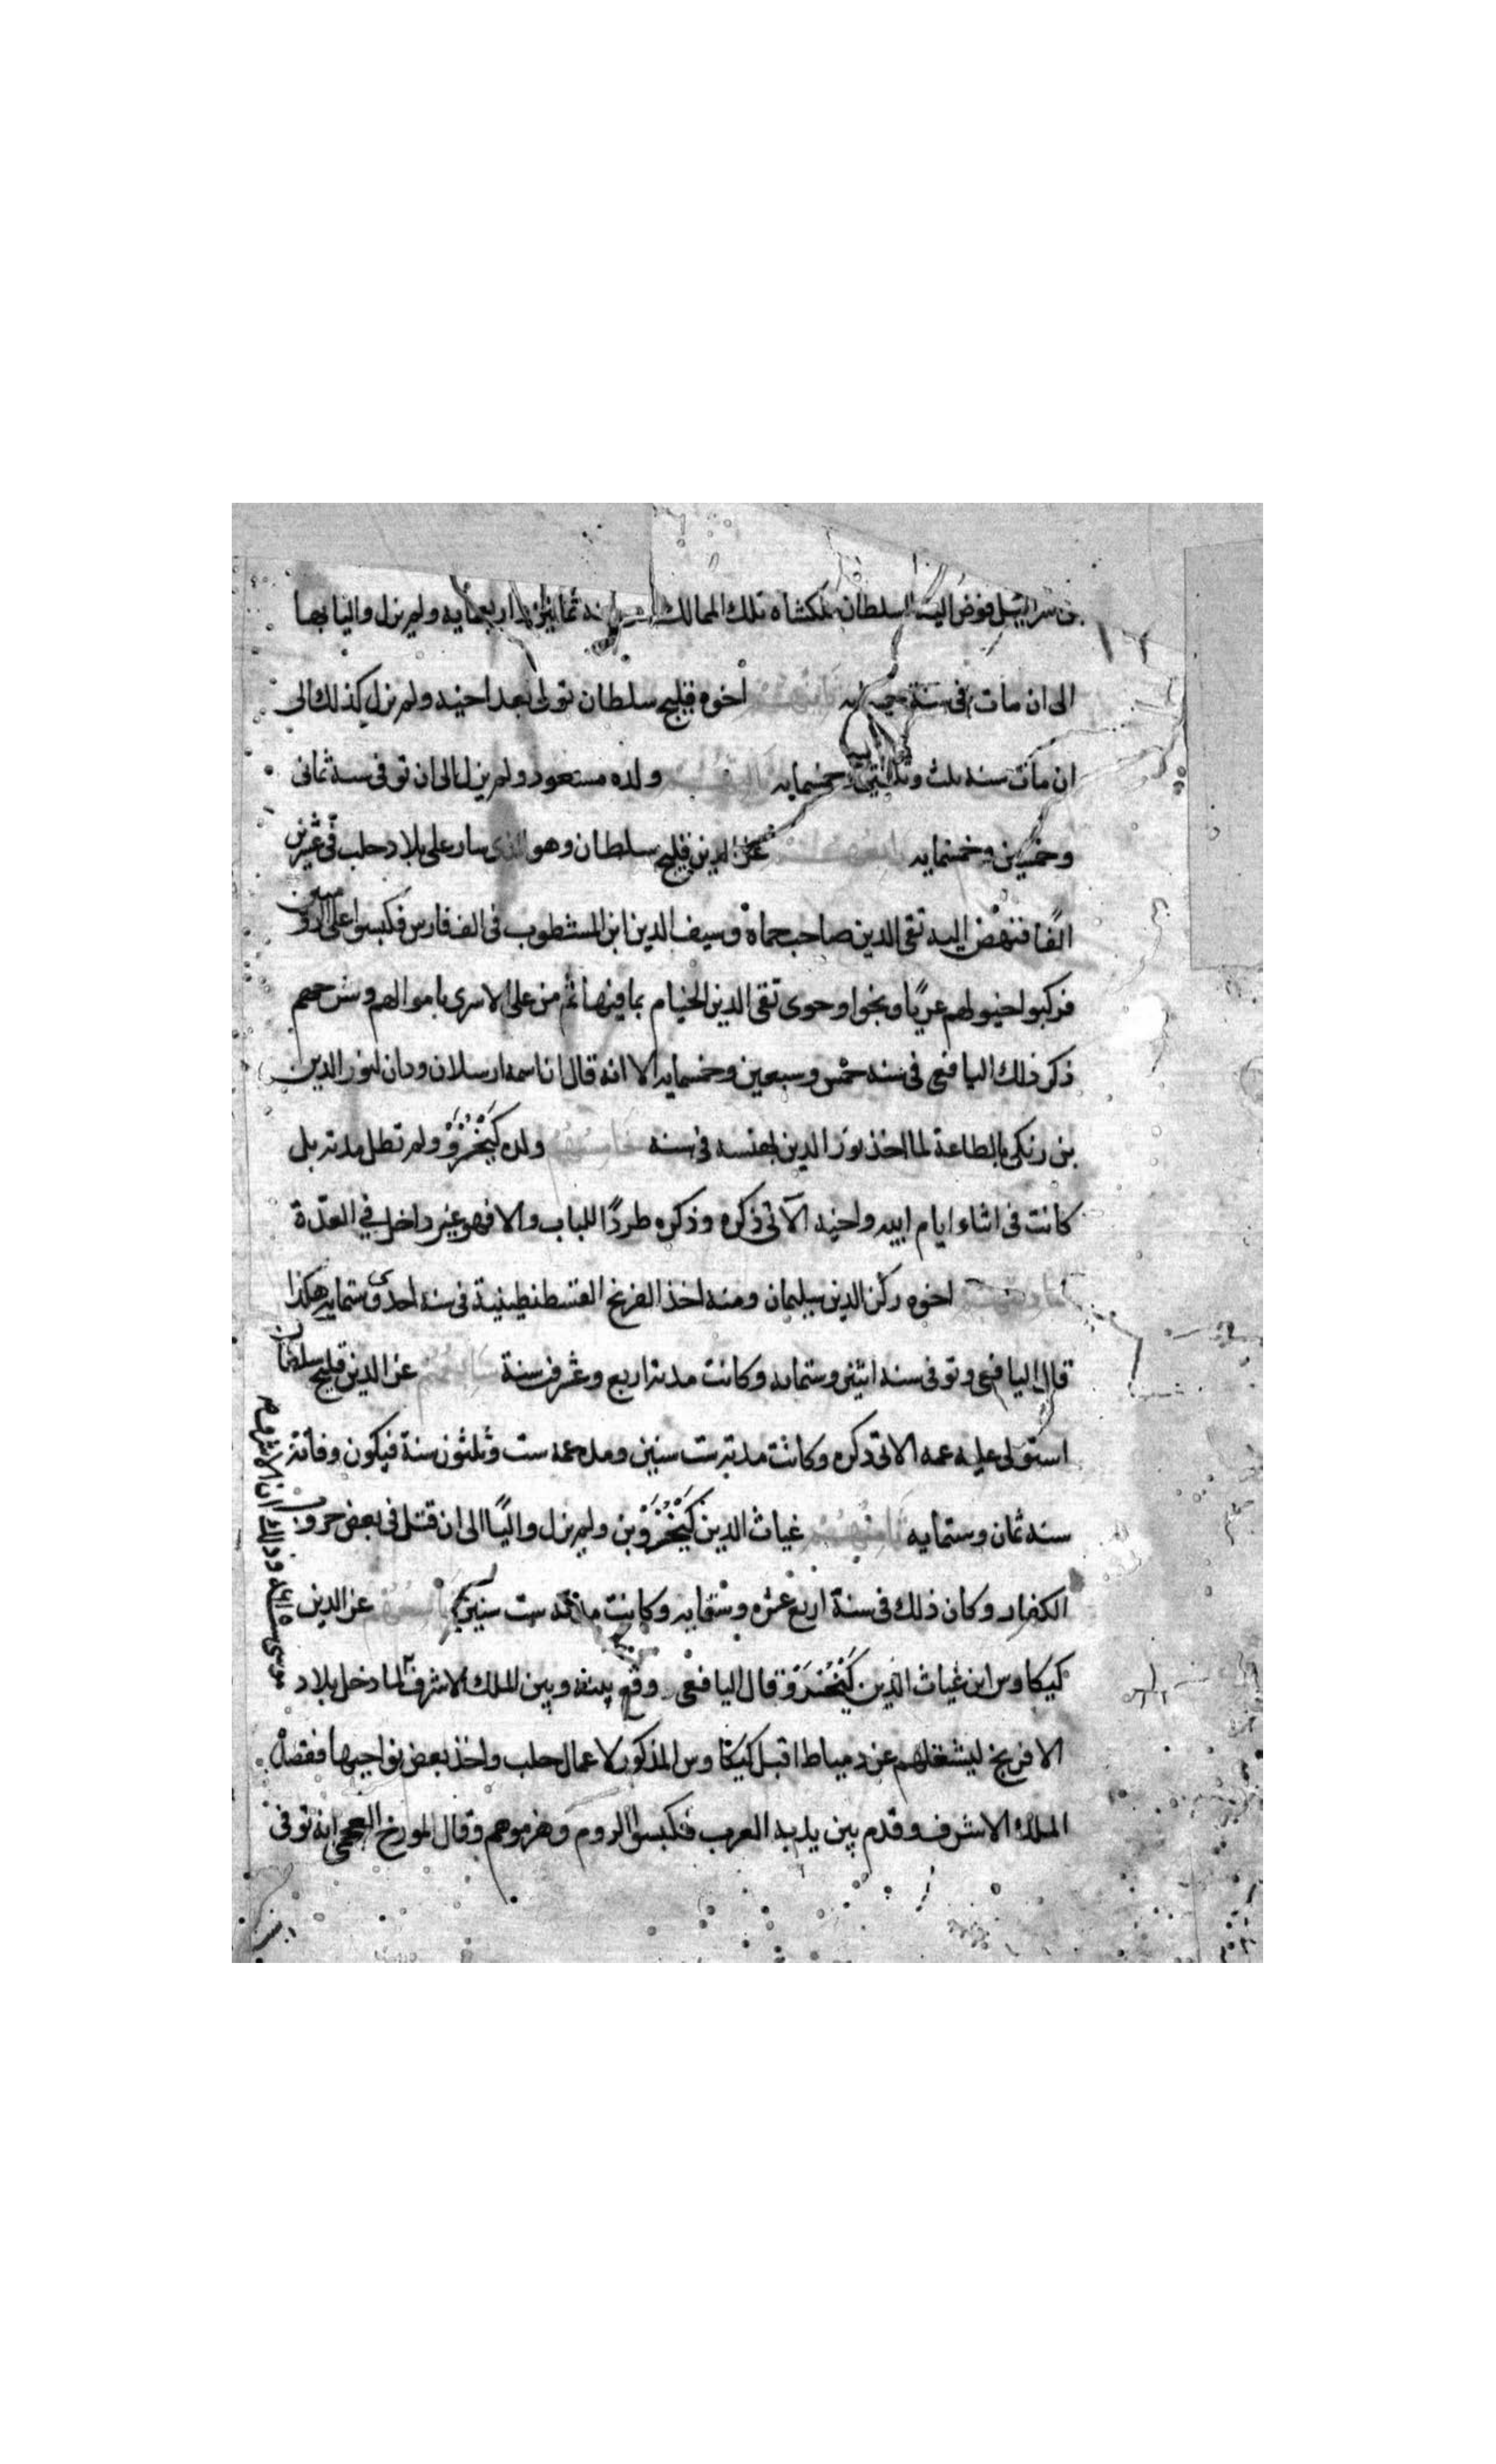 بن سرائيل فوض اليه السلطان ملكشاه تلك الممالك سنة ثمانين واربعمايه ولم يزل واليا بها
الى ان مات فى سنة ثانيهم اخوه قليج سلطان تولى بعد اخيه ولم يزل كذلك الى
ان مات سنه ثلث وثلاثين وخمسمايه ثالثهم ولده مسعود ولم يزل الى ان توفى سنة ثمانى
وخمسين وخمسمايه رابعهم عز الدين قليج سلطان وهو الذى سار على بلاد حلب فى عشرين
الفًا فنهض اليه تقى الدين صاحب حماة وسيف الدين ابن المشطوب فى الف فارس فكبسوا على الروميين
فركبوا خيولهم عريًا ونجوا وحوى تقى الدين الخيام بما فيها ثم من على الاسرى باموالهم وسرحهم
ذكر ذلك اليافعى فى سنه خمس وسبعين وخمسمايه الا انه قال ان اسمه ارسلان ودان لنور الدين
بن زنكى بالطاعة لما اخذ نور الدين فى سنه خامسهم ولده كَيْخُسْرَوْ ولم تطل مدته بل
كانت فى اثناء ايام ابيه واخيه الآتى ذكره وذكره طردًا للباب والا فهو غير داخل في العدة
سادسهم اخوه ركن الدين سليمان ومنه اخذ الفرنج القسطنطينية فى سنه احدى وستمايه هكذا
قال اليافعى وتوفى سنه اثنين وستمايه وكانت مدته اربع وعشرين سنة سابعهم عز الدين قليج سلطان
استولى عليه عمه الاتى ذكره وكانت مدته ست سنين ومده عمه ست وثلثون سنة فيكون وفاته
سنه ثمان وستمايه ثامنهم غياث الدين كَيْخُسْرَوْ بن ولم يزل واليًا الى ان قتل فى بعض حروب
الكفار وكان ذلك فى سنة اربع عشره وستمايه وكانت مدته ست سنين تاسعهم عز الدين
كيكاوس ابن غياث الدين كَيْخُسْرَوْ قال اليافعى وقع بينه وبين الملك الاشرف لما دخل بلاد
الافرنج ليشغلهم عن دمياط اقبل كيكاوس المذكور لاعمال حلب واخذ بعض نواحيها فقصده
الملك الاشرف وقدم بين يديه العرب فكبسوا الروم وهزموهم وقال المورخ العجمى انه توفى
موسى وذلك ان الاشرف